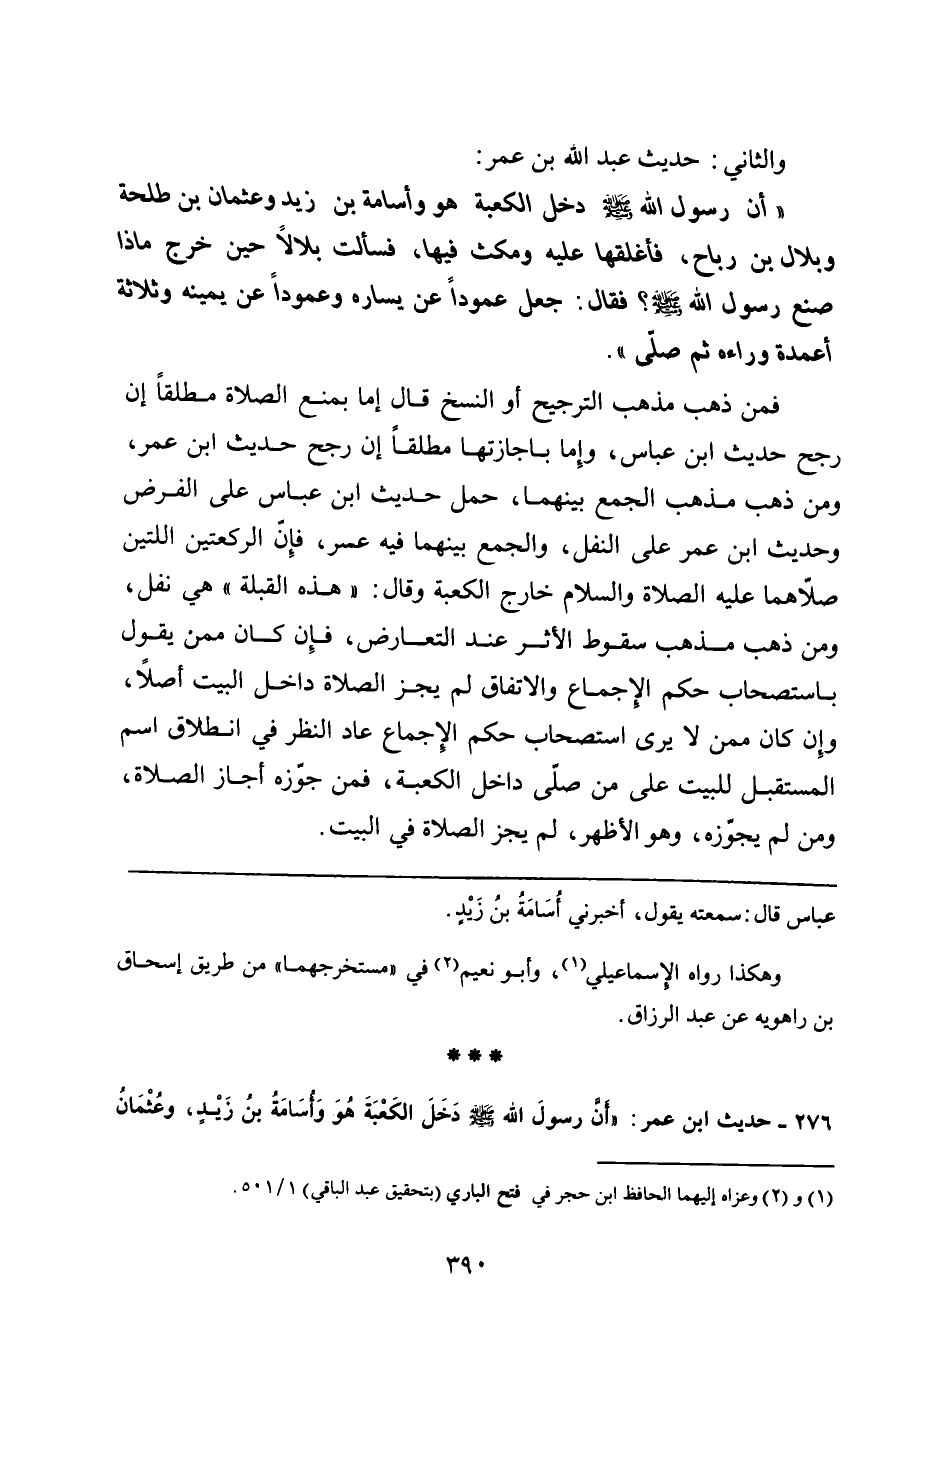 والثاني : حديث عبد الله بن عمر :
« أن رسول الله ﷺ دخل الكعبة هو وأسامة بن زيد وعثمان بن طلحة
وبلال بن رباح، فأغلقها عليه ومكث فيها، فسألت بلالاً حين خرج ماذا
صنع رسول الله ﷺ؟ فقال : جعل عموداً عن يساره وعموداً عن يمينه وثلاثة
أعمدة وراءه ثم صلّى ».
فمن ذهب مذهب الترجيح أو النسخ قال إما بمنع الصلاة مطلقاً إن
رجح حديث ابن عباس، وإما باجازتها مطلقاً إن رجح حديث ابن عمر،
ومن ذهب مذهب الجمع بينهما، حمل حديث ابن عباس على الفرض
وحديث ابن عمر على النفل، والجمع بينهما فيه عسر، فإنّ الركعتين اللتين
صلّاهما عليه الصلاة والسلام خارج الكعبة وقال : « هذه القبلة » هي نفل،
ومن ذهب مذهب سقوط الأثر عند التعارض، فإن كان ممن يقول
باستصحاب حكم الإجماع والاتفاق لم يجز الصلاة داخل البيت أصلاً،
وإن كان ممن لا يرى استصحاب حكم الإجماع عاد النظر في انطلاق اسم
المستقبل للبيت على من صلّى داخل الكعبة، فمن جوّزه أجاز الصلاة،
ومن لم يجوّزه، وهو الأظهر، لم يجز الصلاة في البيت.
عباس قال : سمعته يقول، أخبرني أُسَامَةُ بنُ زَيْدٍ.
وهكذا رواه الإسماعيلي(١)، وأبو نعيم(٢) في «مستخرجهما» من طريق إسحاق
بن راهويه عن عبد الرزاق.
* * *
٢٧٦ ـ حديث ابن عمر : «أَنَّ رسولَ الله ﷺ دَخَلَ الكَعْبَةَ هُوَ وَأُسَامَةُ بنُ زَيْدٍ، وعُثْمَانُ
(١) و (٢) وعزاه إليهما الحافظ ابن حجر في فتح الباري (بتحقيق عبد الباقي) ١/ ٥٠١.
٣٩٠